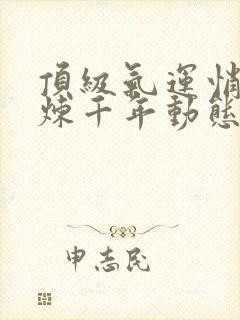 頂級氣運悄
煉千年動態
申志民